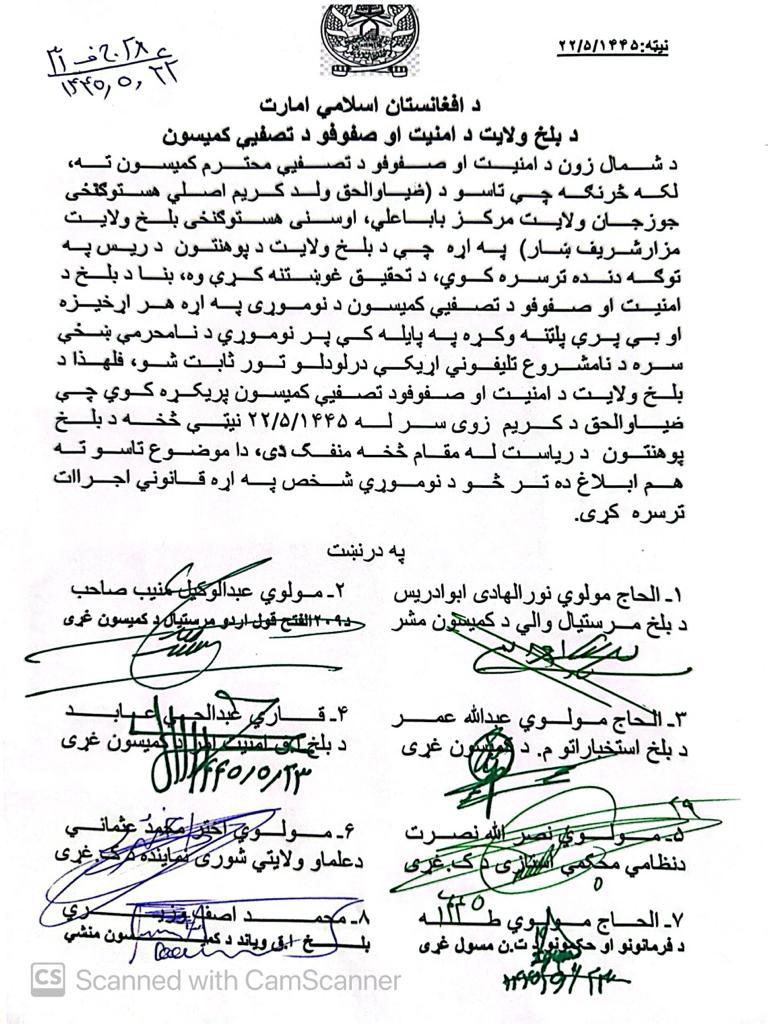 نیټه:۲۲/۵/۱۴۴۵
۱۴۴۵,۵,۲۲
د افغانستان اسلامي امارت
د بلخ ولایت د امنیت او صفوفو د تصفیې کمیسون
د شمال زون د امنیت او صفوفو د تصفیې محترم کمیسون ته،
لکه څرنګه چې تاسو د (ضیاوالحق ولد کریم اصلي هستوګنځی
جوزجان ولایت مرکز باباعلي، اوسنی هستوګنځی بلخ ولایت
مزارشریف ښار) په اړه چې د بلخ ولایت د پوهنتون د ریس په
توګه دنده ترسره کوي، د تحقیق غوښتنه کړې وه، بنا د بلخ د
امنیت او صفوفو د تصفیې کمیسون د نوموړی په اړه هر اړخیزه
او بې پرې پلټنه وکړه په پایله کې پر نوموړي د نامحرمې ښځې
سره د نامشروع تلیفوني اړیکې درلودلو تور ثابت شو، فلهذا د
بلخ ولایت د امنیت او صفوفود تصفیې کمیسون پریکړه کوي چې
ضیاوالحق د کریم زوی سر له ۲۲/۵/۱۴۴۵ نیټې څخه د بلخ
پوهنتون د ریاست له مقام څخه منفک دی، دا موضوع تاسو ته
هم ابلاغ ده تر څو د نوموړي شخص په اړه قانوني اجراات
ترسره کړی.
په درنښت
۱ـ الحاج مولوي نورالهادی ابوادریس
د بلخ مرستیال والي د کمیسون مشر
۲ـ مولوي عبدالوکیل منیب صاحب
د۲۰۹الفتح قول اردو مرستیال د کمیسون غړی
۳ـ الحاج مولوي عبدالله عمر
د بلخ استخباراتو م. د کمیسون غړی
۴ـ قاري عبدالحی عابد
د بلخ ا.ق امنیت امر د کمیسون غړی
۱۴۴۵/۵/۲۳
۵ـ مولوي نصر الله نصرت
دنظامي محکمې استازی د ک.غړی
۶ـ مولوي اختر محمد عثماني
دعلماو ولایتي شوری نماینده د ک.غړی
۷ـ الحاج مولوي طه
د فرمانونو او حکمونو د ت.ن مسول غړی
۸ـ محمد اصف وزیري
بلخ ا.ق ویاند د کمیسون منشي
CS Scanned with CamScanner